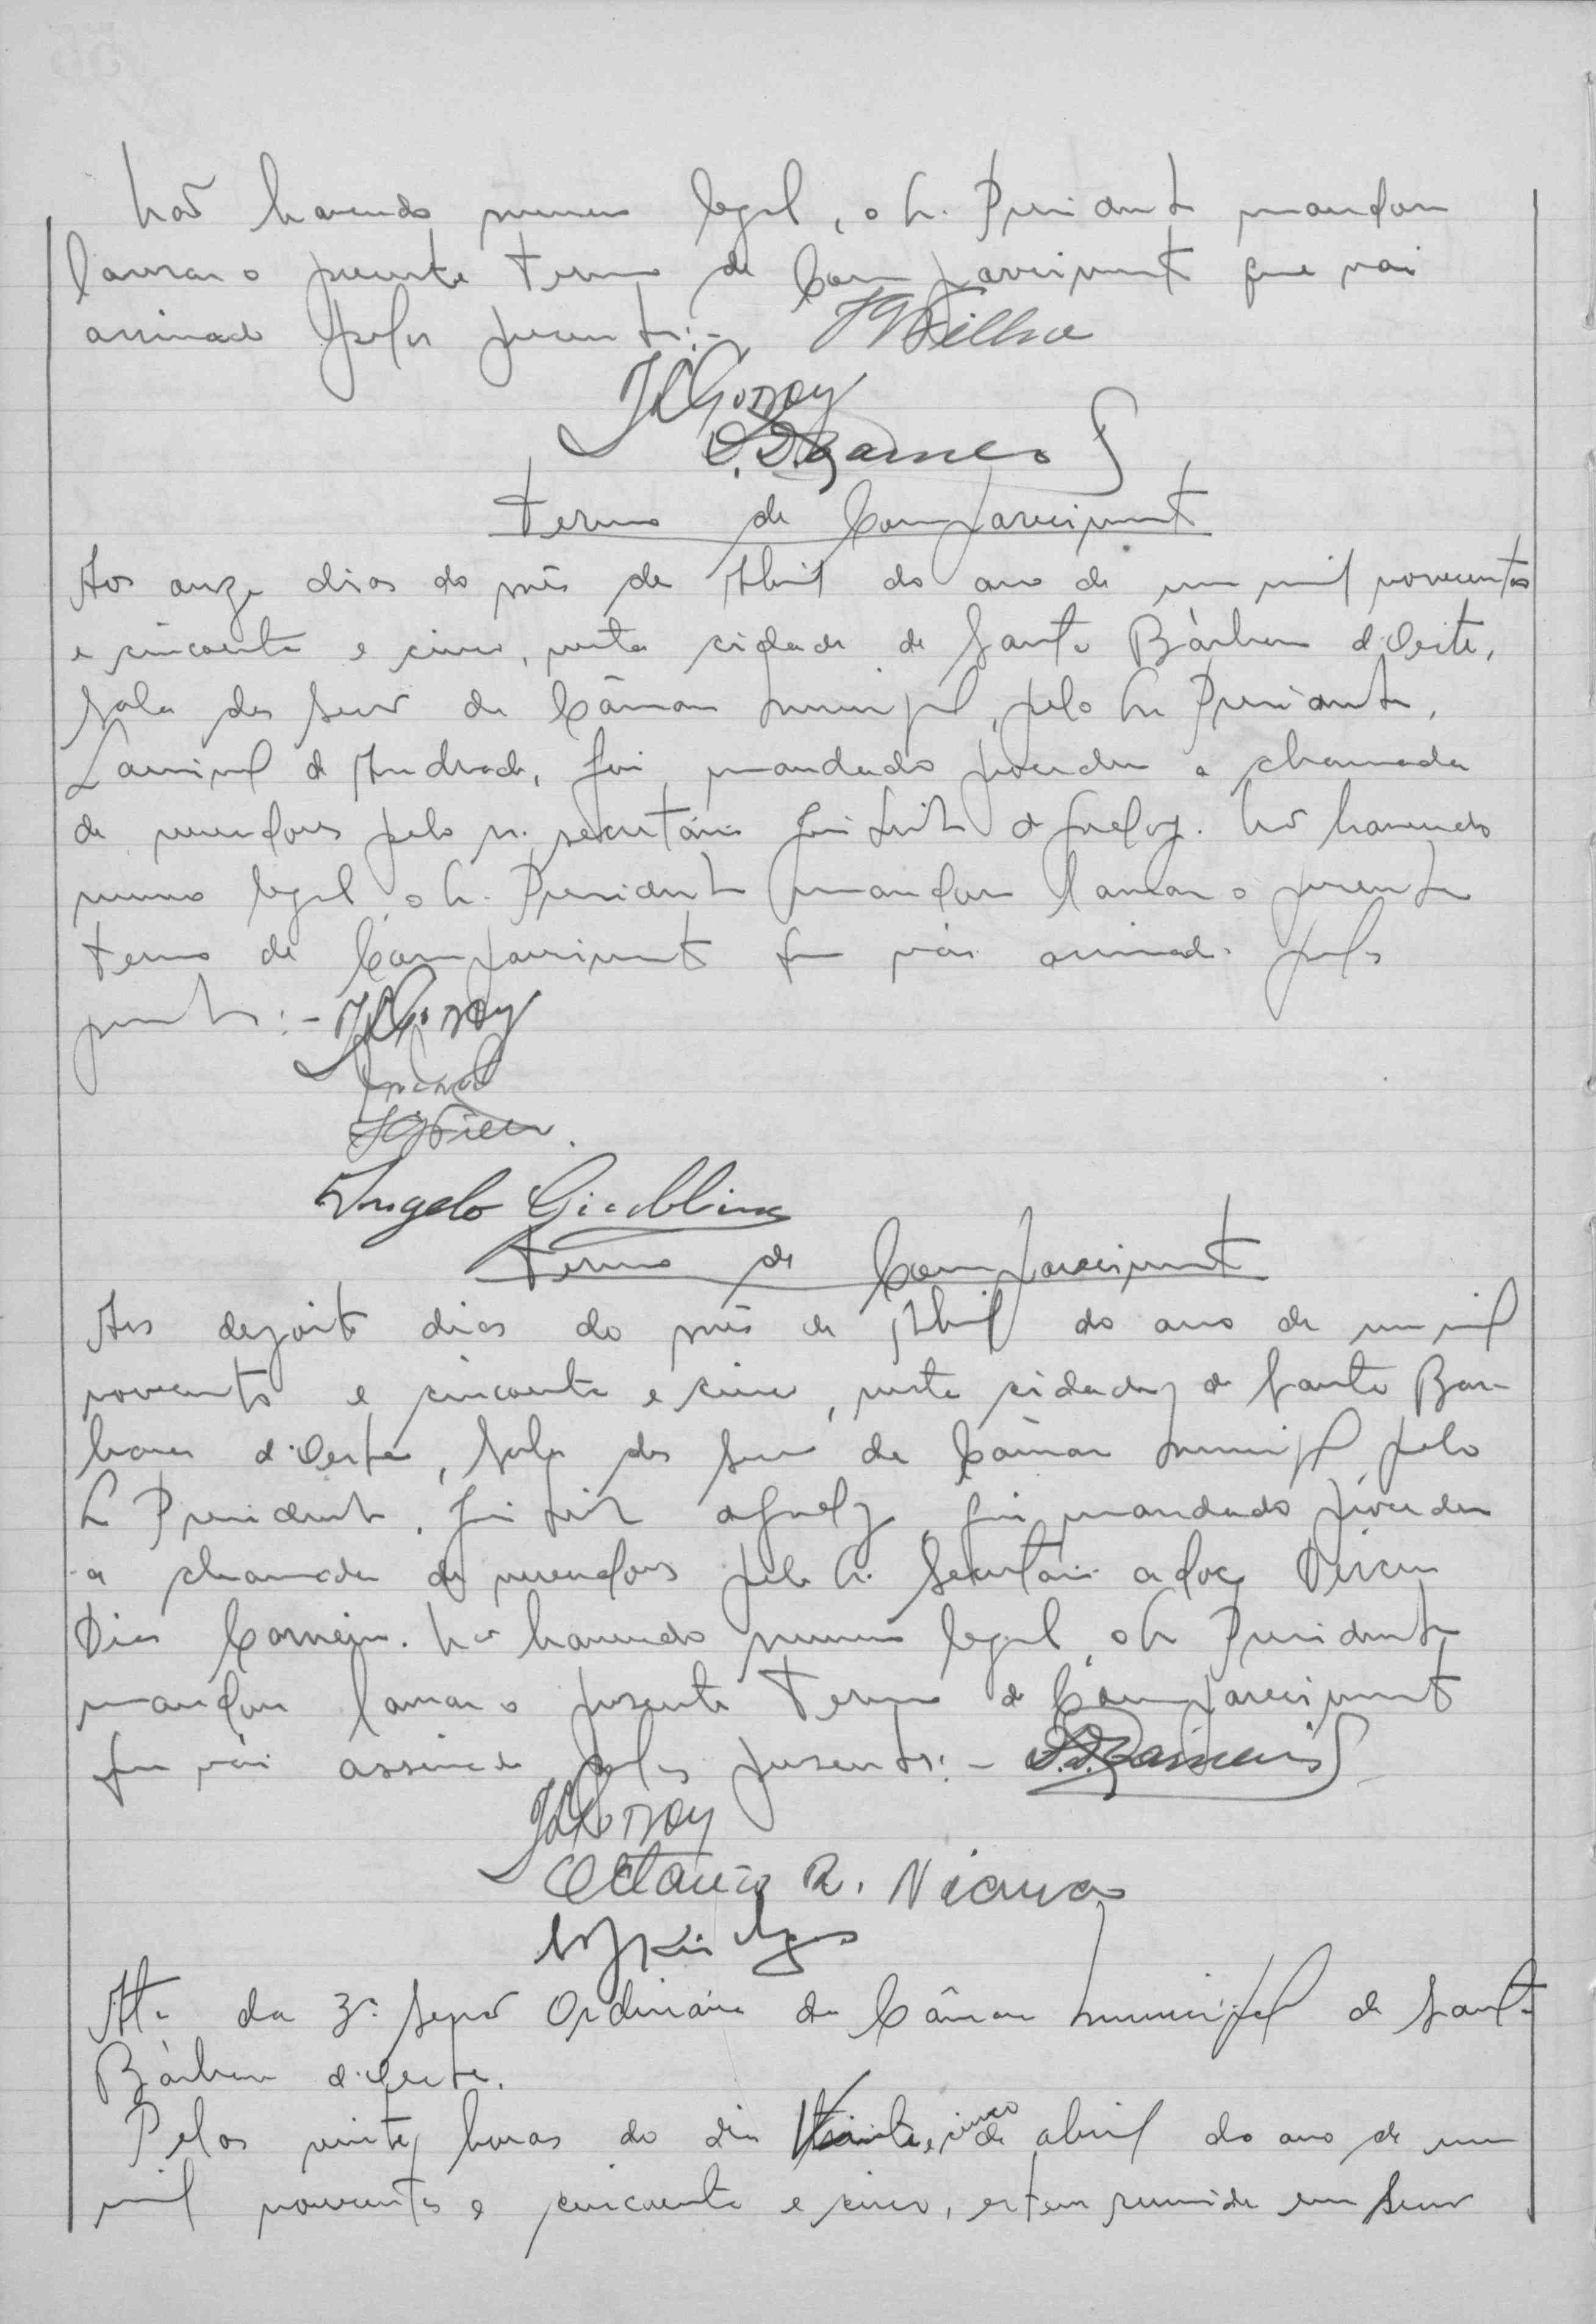 Não havendo numero legal, o Sr. Presidente mandou
lavrar o presente termo de Comparecimento que vai
assinado pelos presentes:-
J L Godoy
Termo de Comparecimento
Aos onze dias do mês de Abril do ano de um mil novecentos
e cincoenta e cinco, nesta cidade de Santa Bárbara d'Oeste,
Sala das Sessões da Câmara Municipal, pelo Sr Presidente,
de Andrade, foi mandado proceder a chamada
de vereadores pelo sr. secretário José Luiz de Godoy. Não havendo
numero legal, o Sr. Presidente mandou lavrar o presente
termo de Comparecimento que vai assinado pelos
presentes:- J L Godoy
Angelo Giubbina
Termo de Comparecimento
Aos dezoito dias do mês de Abril do ano de um mil
novecentos e cincoenta e cinco, nesta cidade de Santa Bár-
bara d'Oeste, Sala das Sessões da Câmara Municipal pelo
Sr Presidente, José Luiz de Godoy, foi mandado proceder
a chamada de vereadores pelo Sr. Secretário adoc, Dirceu
Dias Carneiro. Não havendo numero legal, o Sr Presidente
mandou lavrar o presente Termo de Comparecimento
que vai assinado pelos presentes:- D.D.Carneiro
J L Godoy
Octavio R. Viana
Ata da 3ª Sessão Ordinária da Câmara Municipal de Santa
Bárbara d'Oeste.
Pelas vinte horas do dia vinte e cinco de abril do ano de um
mil novecentos e cincoenta e cinco, esteve reunida em Sessão